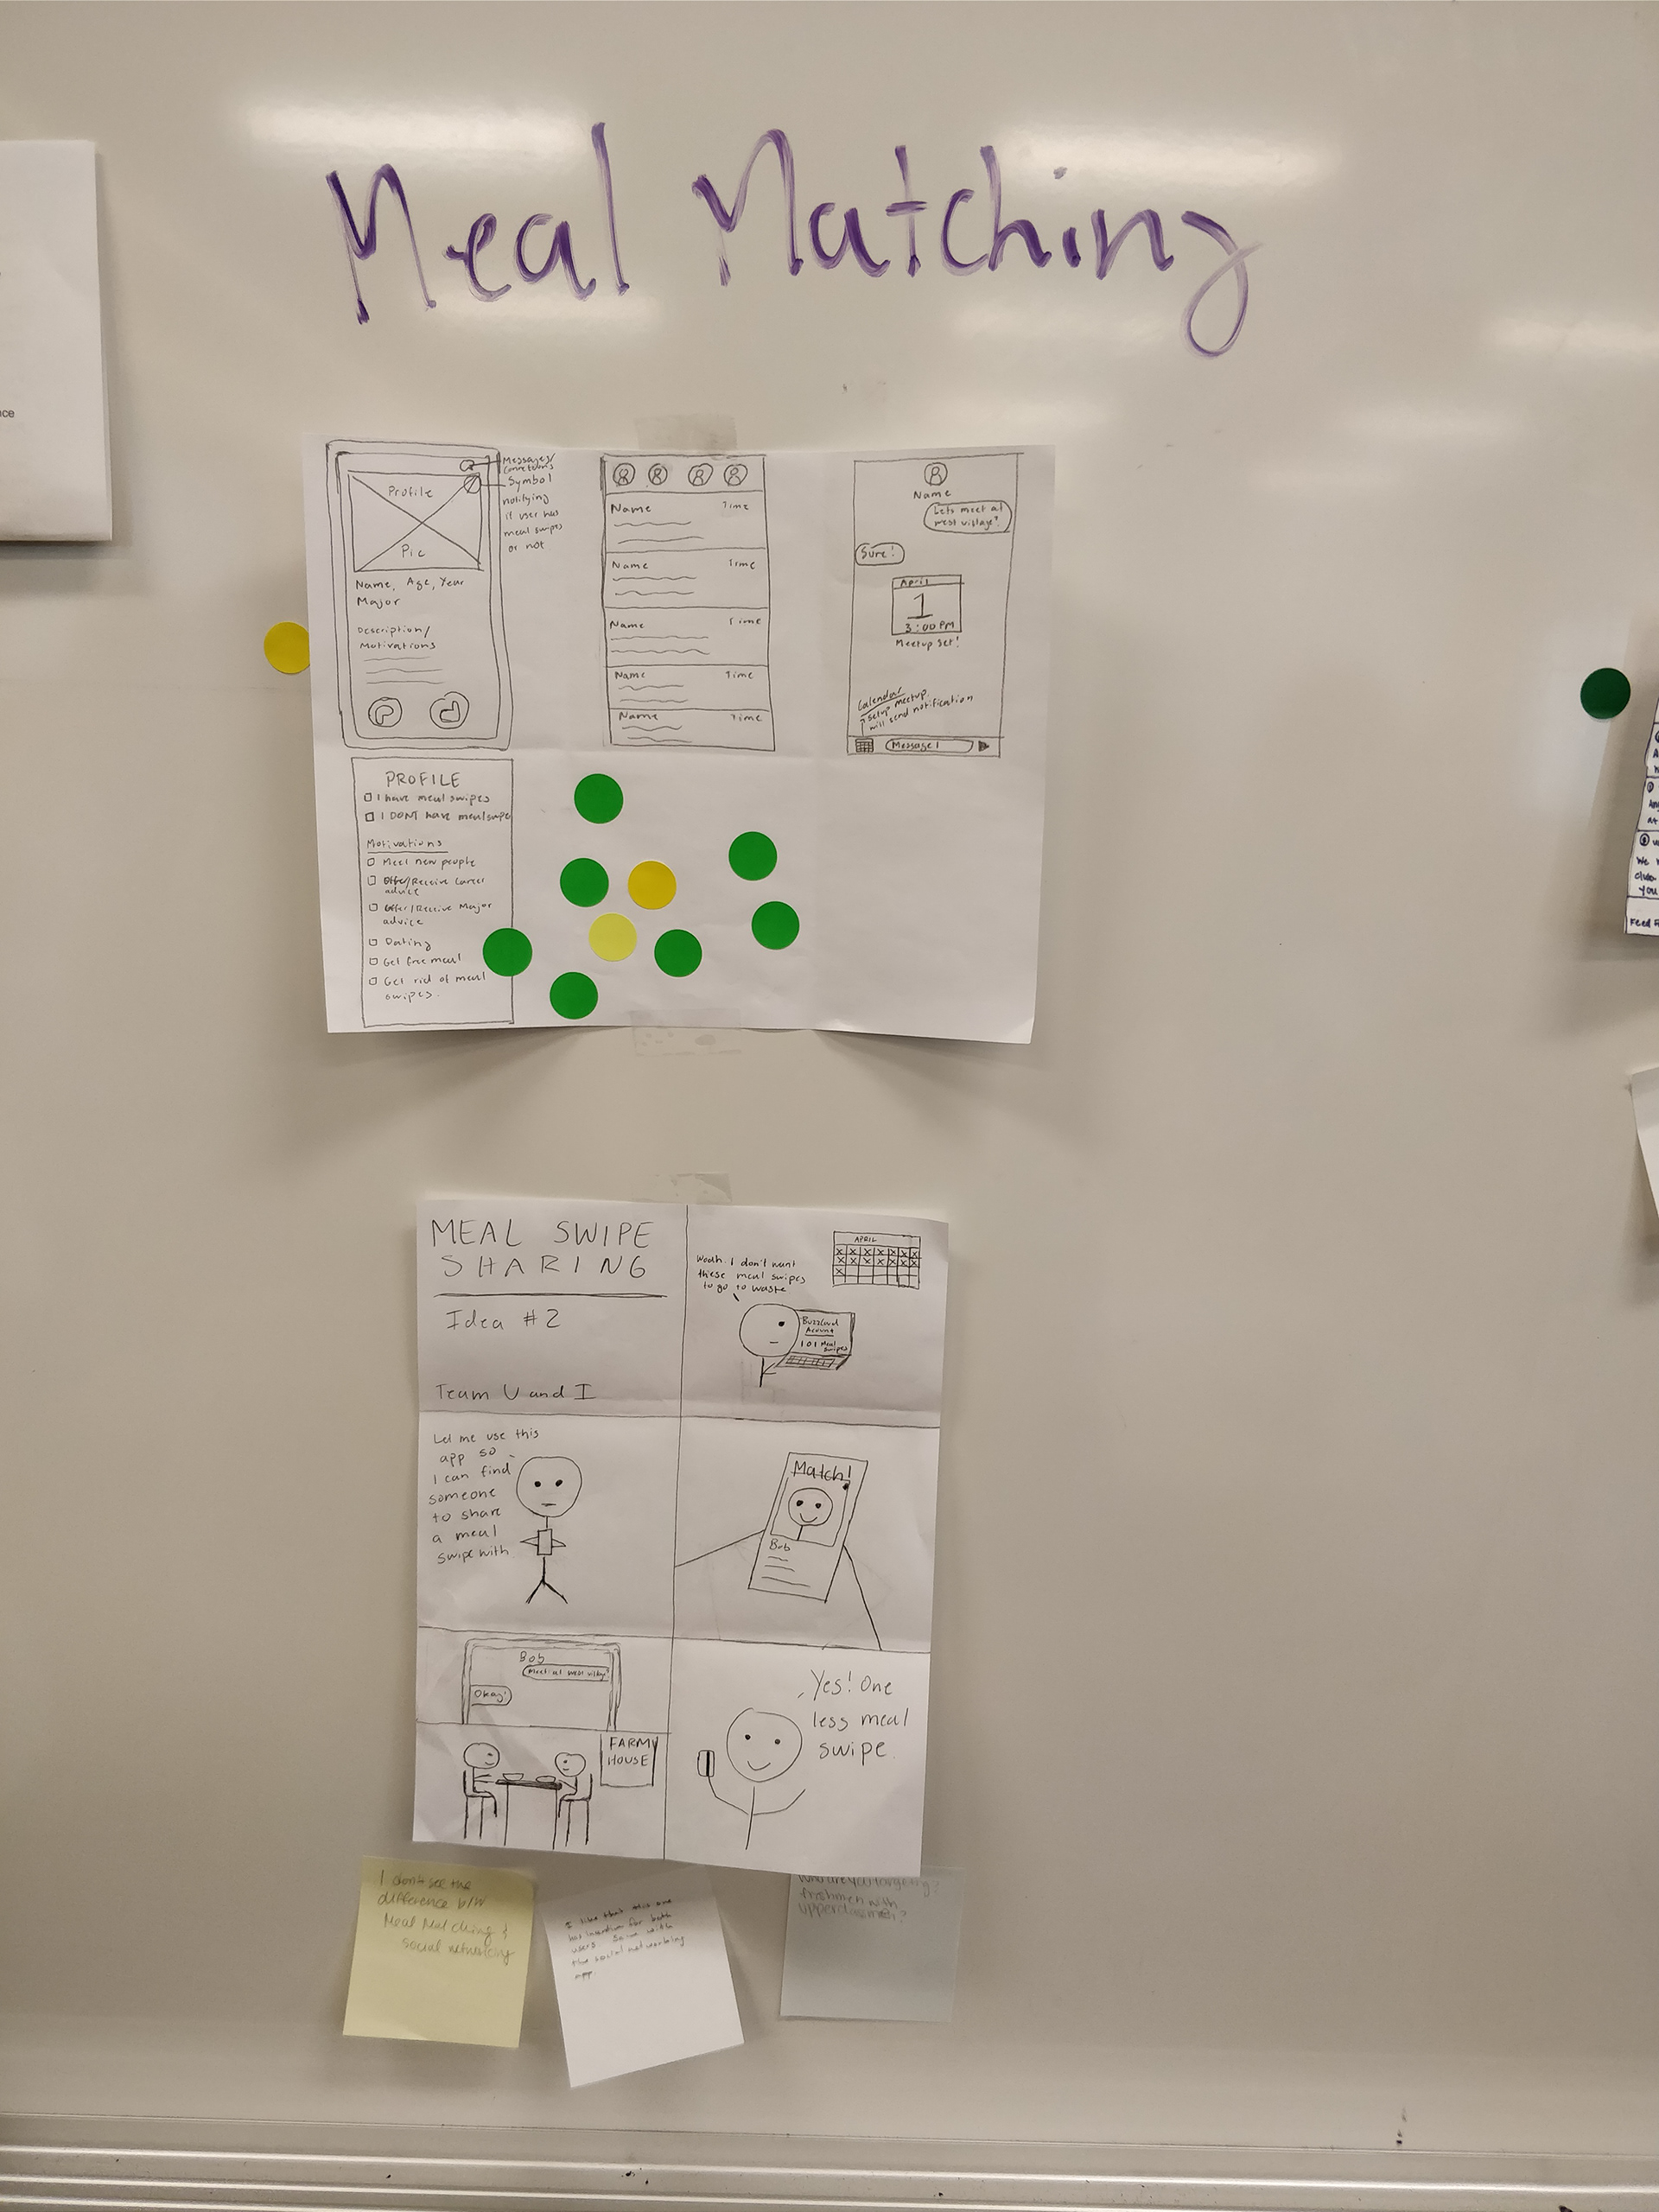 Meal Matching
nce
Profile
Pic
Messages/
Connections
Symbol
notifying
if user has
meal swipes
or not
Name, Age, Year
Major
Description/
Motivations
Name Time
Name Time
Name Time
Name Time
Name Time
Name
Lets meet at
west village?
Sure!
April
1
3:00 PM
Meetup Set!
Calendar
setup meetup.
will send notification
Message!
PROFILE
I have meal swipes
I DONT have meal swipes
Motivations
Meet new people
Offer/Receive Career
advice
Offer/Receive Major
advice
Dating
Get free meal
Get rid of meal
swipes.
MEAL SWIPE
SHARING
Idea #2
Team U and I
Woah. I don't want
these meal swipes
to go to waste
APRIL
BuzzCard
Account
101 Meal
Swipes
Let me use this
app so
I can find
someone
to share
a meal
swipe with
Match!
Bob
Bob
Meet at west village?
Okay!
FARM
HOUSE
Yes! One
less meal
swipe.
I don't see the
difference b/w
Meal Matching &
social networking
I like that this one
has incentive for both
users. Same with
the social networking
app.
who are you targeting?
freshmen with
upperclassmen?
you
Feed F